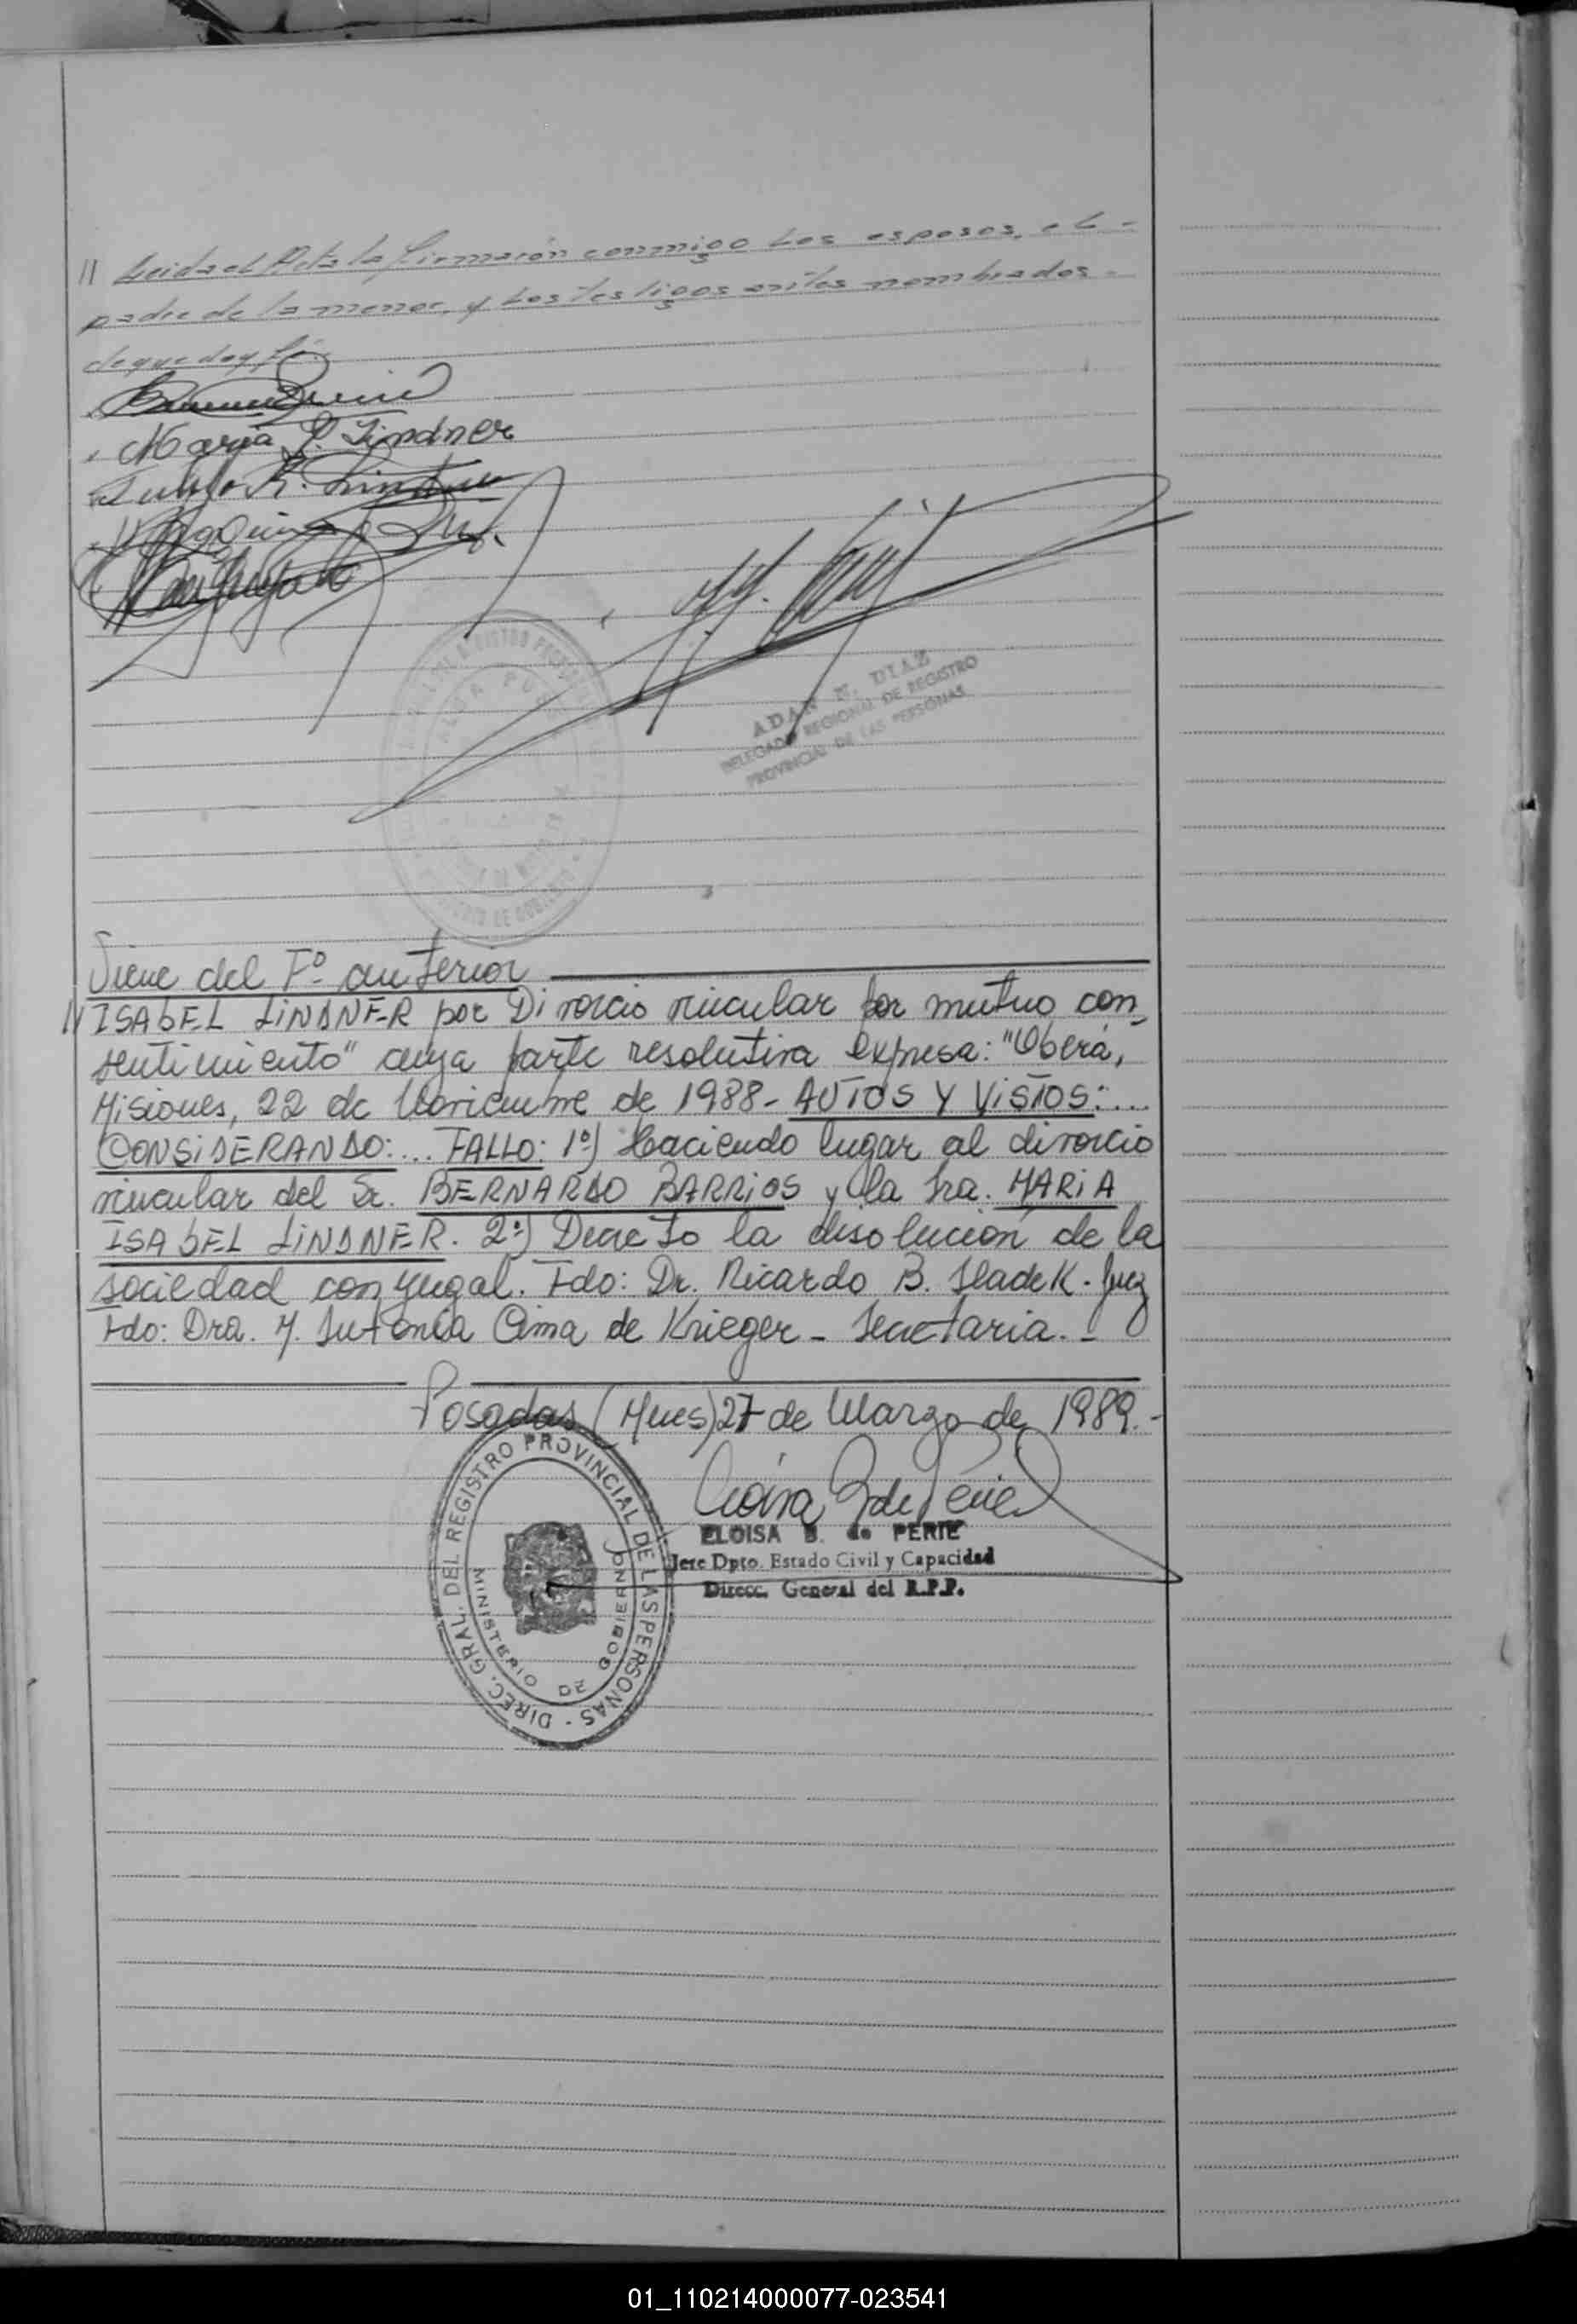 // Leida el Acta la firmaron conmigo los esposos, el -
padre de la menor, y los testigos antes nombrados -
de que doy fé.
Maria I. Lindner
ADAN N. DIAZ
DELEGADO REGIONAL DE REGISTRO
PROVINCIAL DE LAS PERSONAS
Viene del Fº anterior
// ISABEL LINDNER por Divorcio vincular por mutuo con_
sentimiento" cuya parte resolutiva expresa: "Oberá,
Misiones, 22 de Noviembre de 1988- AUTOS Y VISTOS:...
CONSIDERANDO:... FALLO: 1º) Haciendo lugar al divorcio
vincular del Sr. BERNARDO BARRIOS y la Sra. MARIA
ISABEL LINDNER. 2º) Decreto la disolución de la
sociedad conyugal. Fdo: Dr. Ricardo B. Sladek. Juez
Fdo: Dra. M. Antonia Cima de Krieger - Secretaria.-
Posadas (Mnes) 27 de Marzo de 1989.-
ELOISA B. de PERIE
Jefe Dpto. Estado Civil y Capacidad
Direcc. General del R.P.P.
DIREC. GRAL. DEL REGISTRO PROVINCIAL DE LAS PERSONAS -
MINISTERIO DE GOBIERNO
01_110214000077-023541